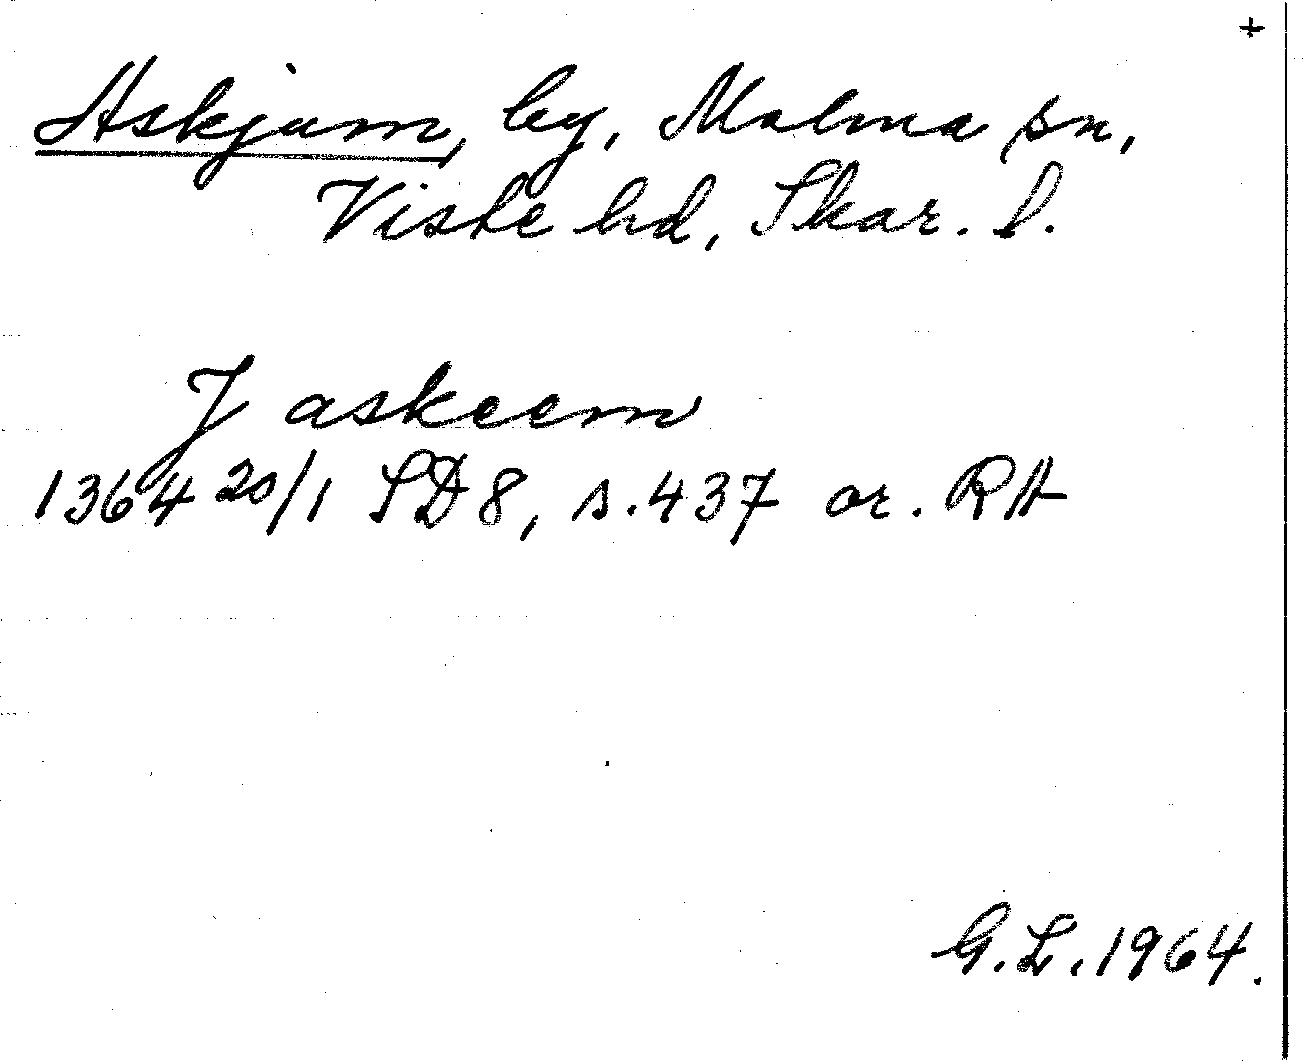 +
Askjum, by, Malma sn,
Viste hd, Skar. l.
J askeem
1364 20/1 SD8, s.437 or. RA
G.L.1964.